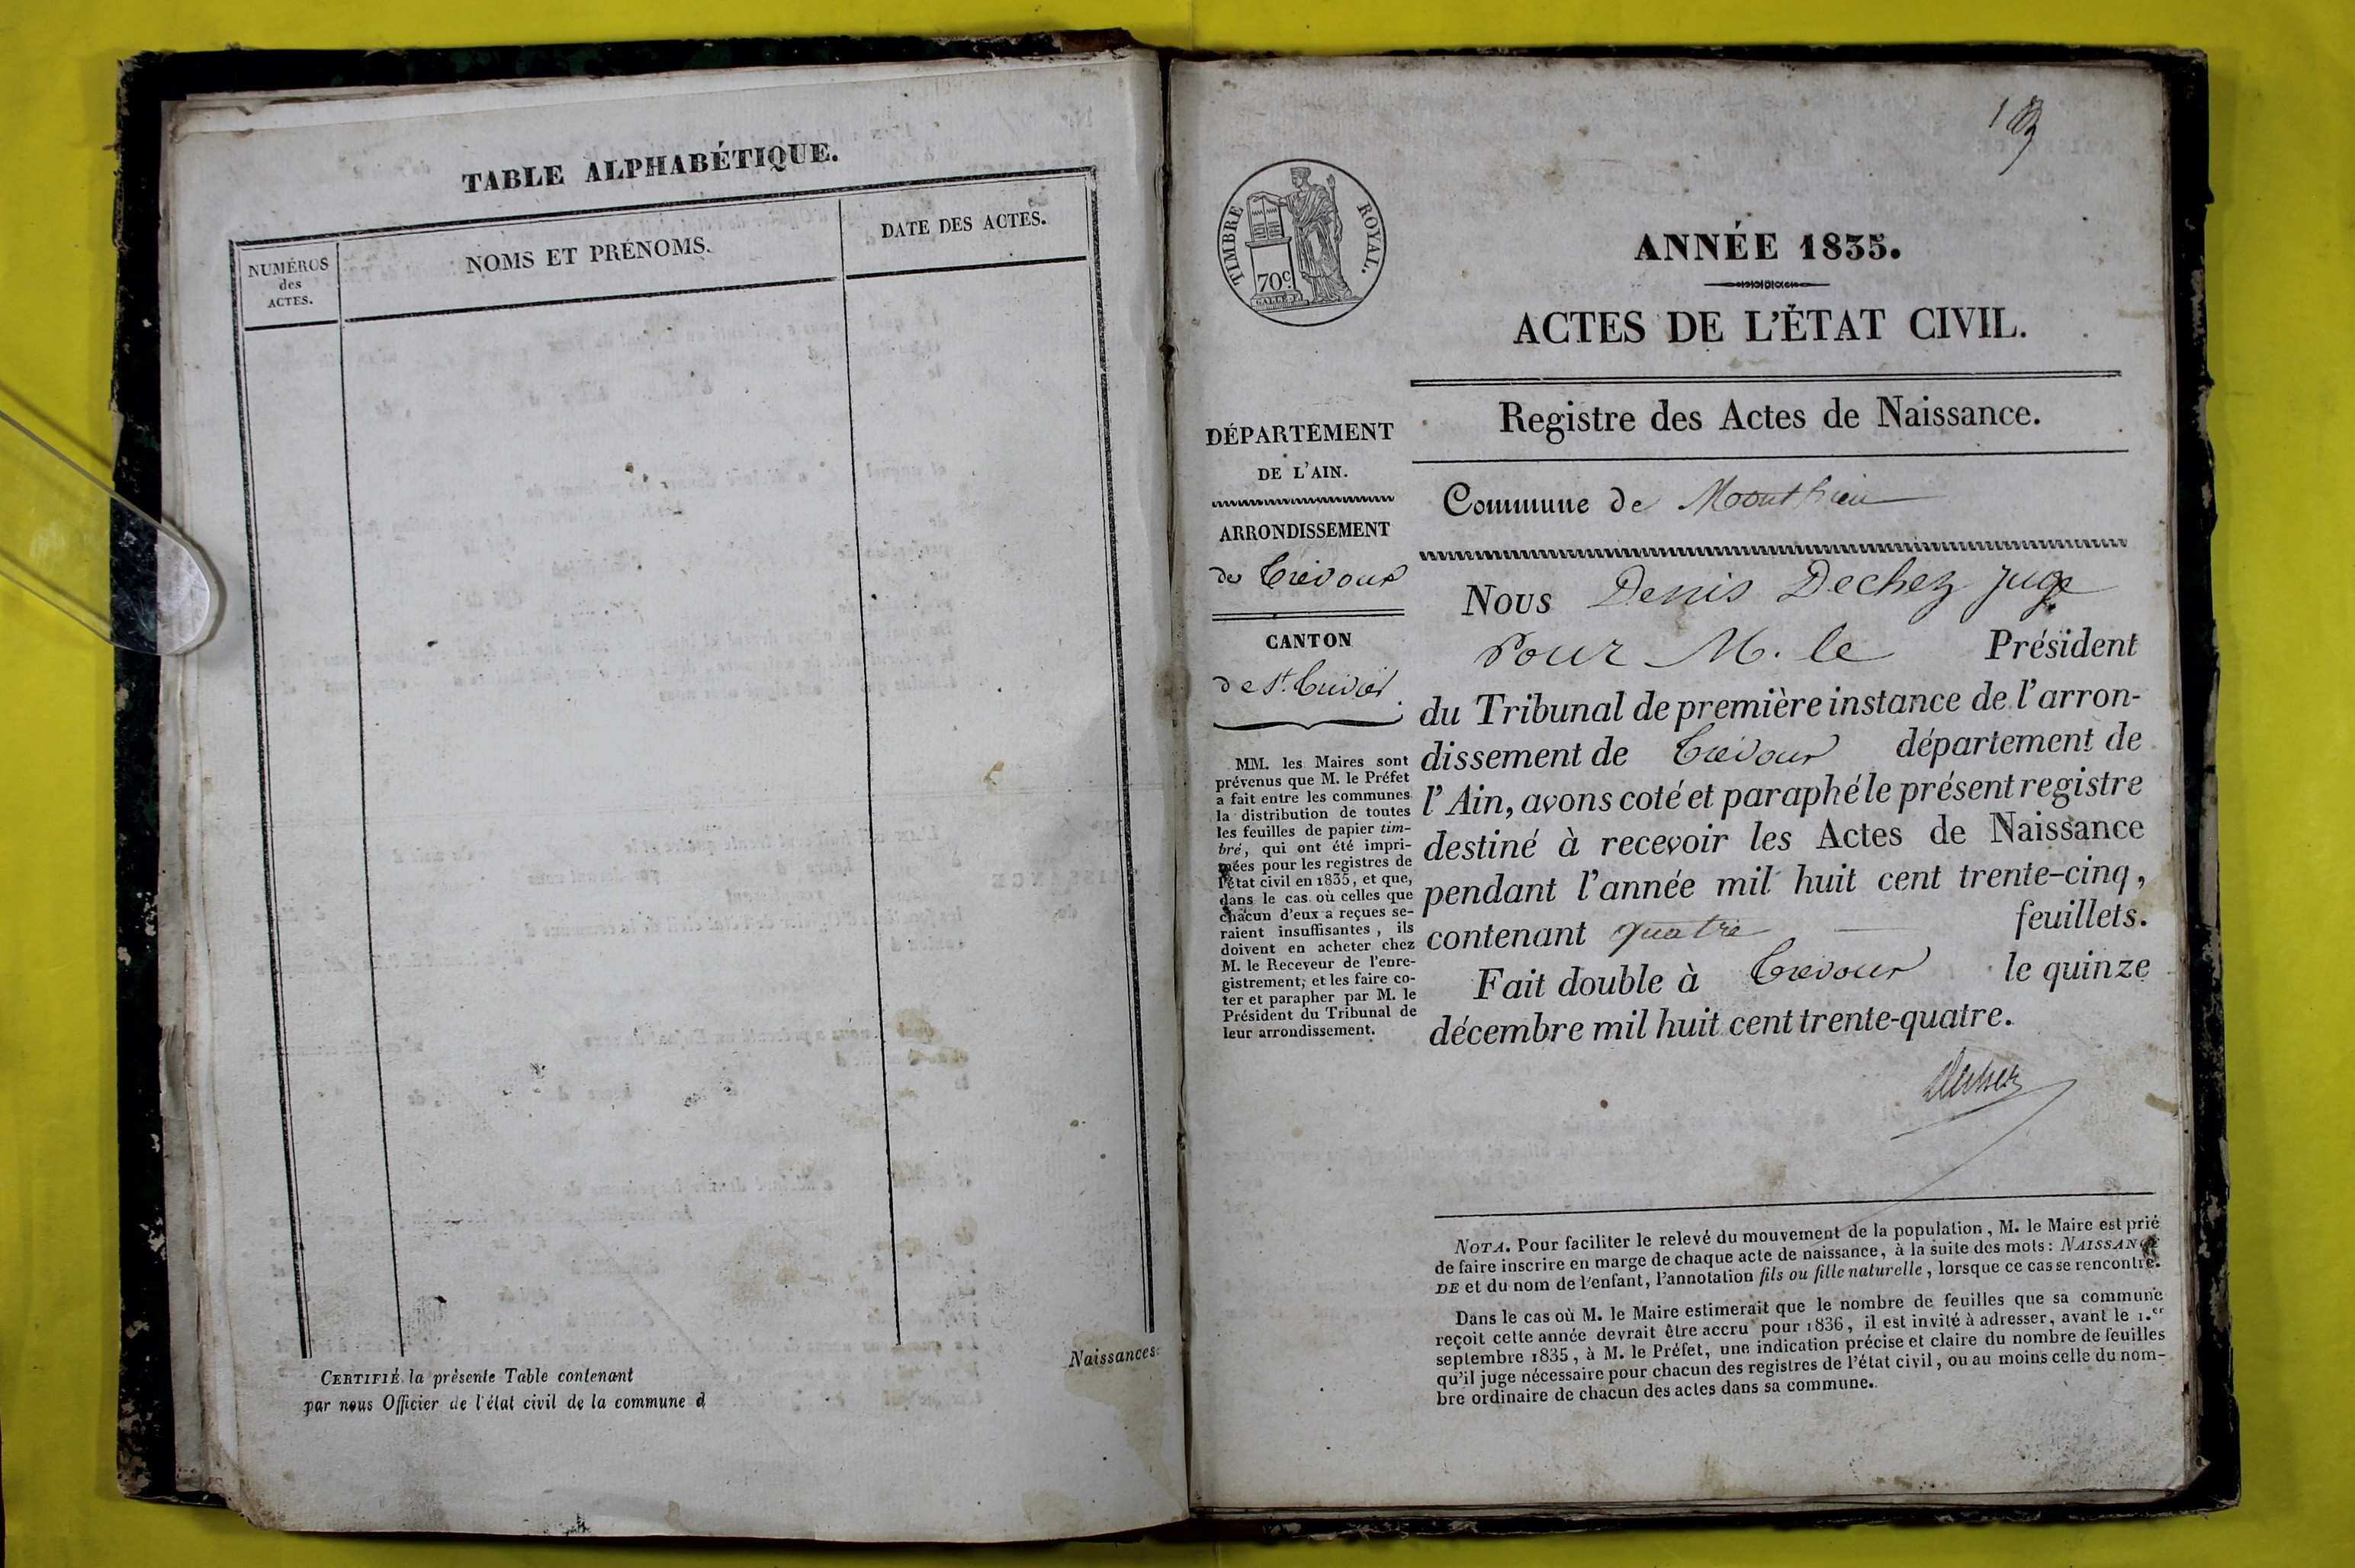 TABLE ALPHABÉTIQUE.
NUMÉROS
des
ACTES.
NOMS ET PRÉNOMS.
DATE DES ACTES.
CERTIFIÉ la présente Table contenant
Naissances
par nous Officier de l'état civil de la commune d
TIMBRE ROYAL.
70c.
ANNÉE 1835.
ACTES DE L'ÉTAT CIVIL.
DÉPARTEMENT
DE L'AIN.
ARRONDISSEMENT
de Trévoux
CANTON
de St. Trivier
MM. les Maires sont
prévenus que M. le Préfet
a fait entre les communes
la distribution de toutes
les feuilles de papier tim-
bré, qui ont été impri-
mées pour les registres de
l'état civil en 1835, et que,
dans le cas où celles que
chacun d'eux a reçues se-
raient insuffisantes, ils
doivent en acheter chez
M. le Receveur de l'enre-
gistrement, et les faire co-
ter et parapher par M. le
Président du Tribunal de
leur arrondissement.
Registre des Actes de Naissance.
Commune de Monthieu
Nous Denis Dechez juge
pour M. le Président
du Tribunal de première instance de l'arron-
dissement de Trévoux département de
l'Ain, avons coté et paraphé le présent registre
destiné à recevoir les Actes de Naissance
pendant l'année mil huit cent trente-cinq,
contenant quatre feuillets.
Fait double à Trevoux le quinze
décembre mil huit cent trente-quatre.
Dechez
NOTA. Pour faciliter le relevé du mouvement de la population, M. le Maire est prié
de faire inscrire en marge de chaque acte de naissance, à la suite des mots: NAISSANCE
DE et du nom de l'enfant, l'annotation fils ou fille naturelle, lorsque ce cas se rencontre.
Dans le cas où M. le Maire estimerait que le nombre de feuilles que sa commune
reçoit cette année devrait être accru pour 1836, il est invité à adresser, avant le 1.er
septembre 1835, à M. le Préfet, une indication précise et claire du nombre de feuilles
qu'il juge nécessaire pour chacun des registres de l'état civil, ou au moins celle du nom-
bre ordinaire de chacun des actes dans sa commune.